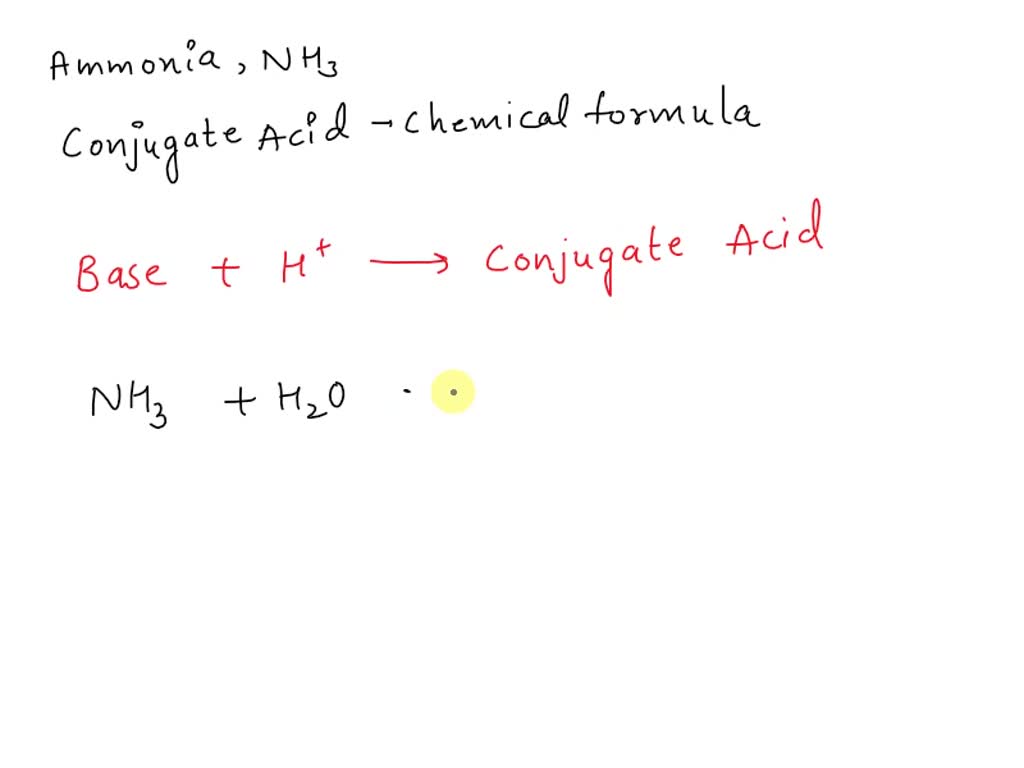 Ammonia, NH₃
Conjugate Acid - chemical formula
Base + H⁺ ⟶ Conjugate Acid
NH₃ + H₂O